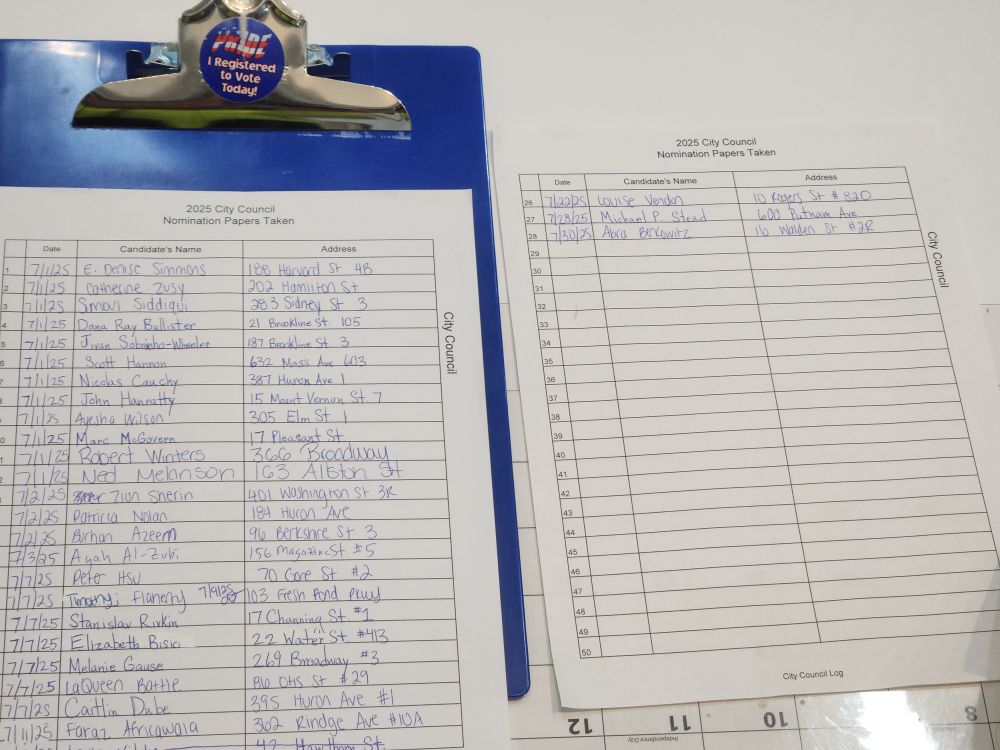 PRIDE
I Registered
to Vote
Today!
2025 City Council
Nomination Papers Taken
Date Candidate's Name Address
1 7/1/25 E. Denise Simmons 188 Harvard St 4B
2 7/1/25 Catherine Zusy 202 Hamilton St
3 7/1/25 Siddiqui 283 Sidney St 3
4 7/1/25 Dana Ray Bullister 21 Brookline St. 105
5 7/1/25 Jivan Sobrinho-Wheeler 187 Brookline St 3
7/1/25 Scott Hannon 632 Mass Ave 603
7/1/25 Nicolas Cauchy 387 Huron Ave 1
7/1/25 John Hanratty 15 Mount Vernon St 7
7/1/25 Ayesha Wilson 305 Elm St 1
7/1/25 Marc McGovern 17 Pleasant St
7/1/25 Robert Winters 366 Broadway
7/1/25 Ned Melanson 163 Allston St
7/2/25 Zion Sherin 401 Washington St 3R
7/2/25 Patricia Nolan 184 Huron Ave
7/2/25 Burhan Azeem 96 Berkshire St 3
7/3/25 Ayah Al-Zubi 156 Magazine St #5
7/7/25 Peter Hsu 70 Gore St #2
7/7/25 Timothy Flaherty 7/9/25 103 Fresh Pond Pkwy
7/7/25 Stanislav Rivkin 17 Channing St. #1
7/7/25 Elizabeth Bisio 22 Water St. #413
7/7/25 Melanie Gause 269 Broadway #3
7/7/25 LaQueen Battle 86 Otis St #29
7/7/25 Caitlin Dube 395 Huron Ave #1
7/11/25 Faraz 362 Rindge Ave #10A
City Council
2025 City Council
Nomination Papers Taken
Date Candidate's Name Address
26 7/22/25 Louise Venden 10 Rogers St #820
27 7/28/25 Michael P. Stead 600 Putnam Ave
28 7/30/25 Abra Berkowitz 16 Walden St #2R
29
30
31
32
33
34
35
36
37
38
39
40
41
42
43
44
45
46
47
48
49
50
City Council
City Council Log
12
11
10
8
Independence Day